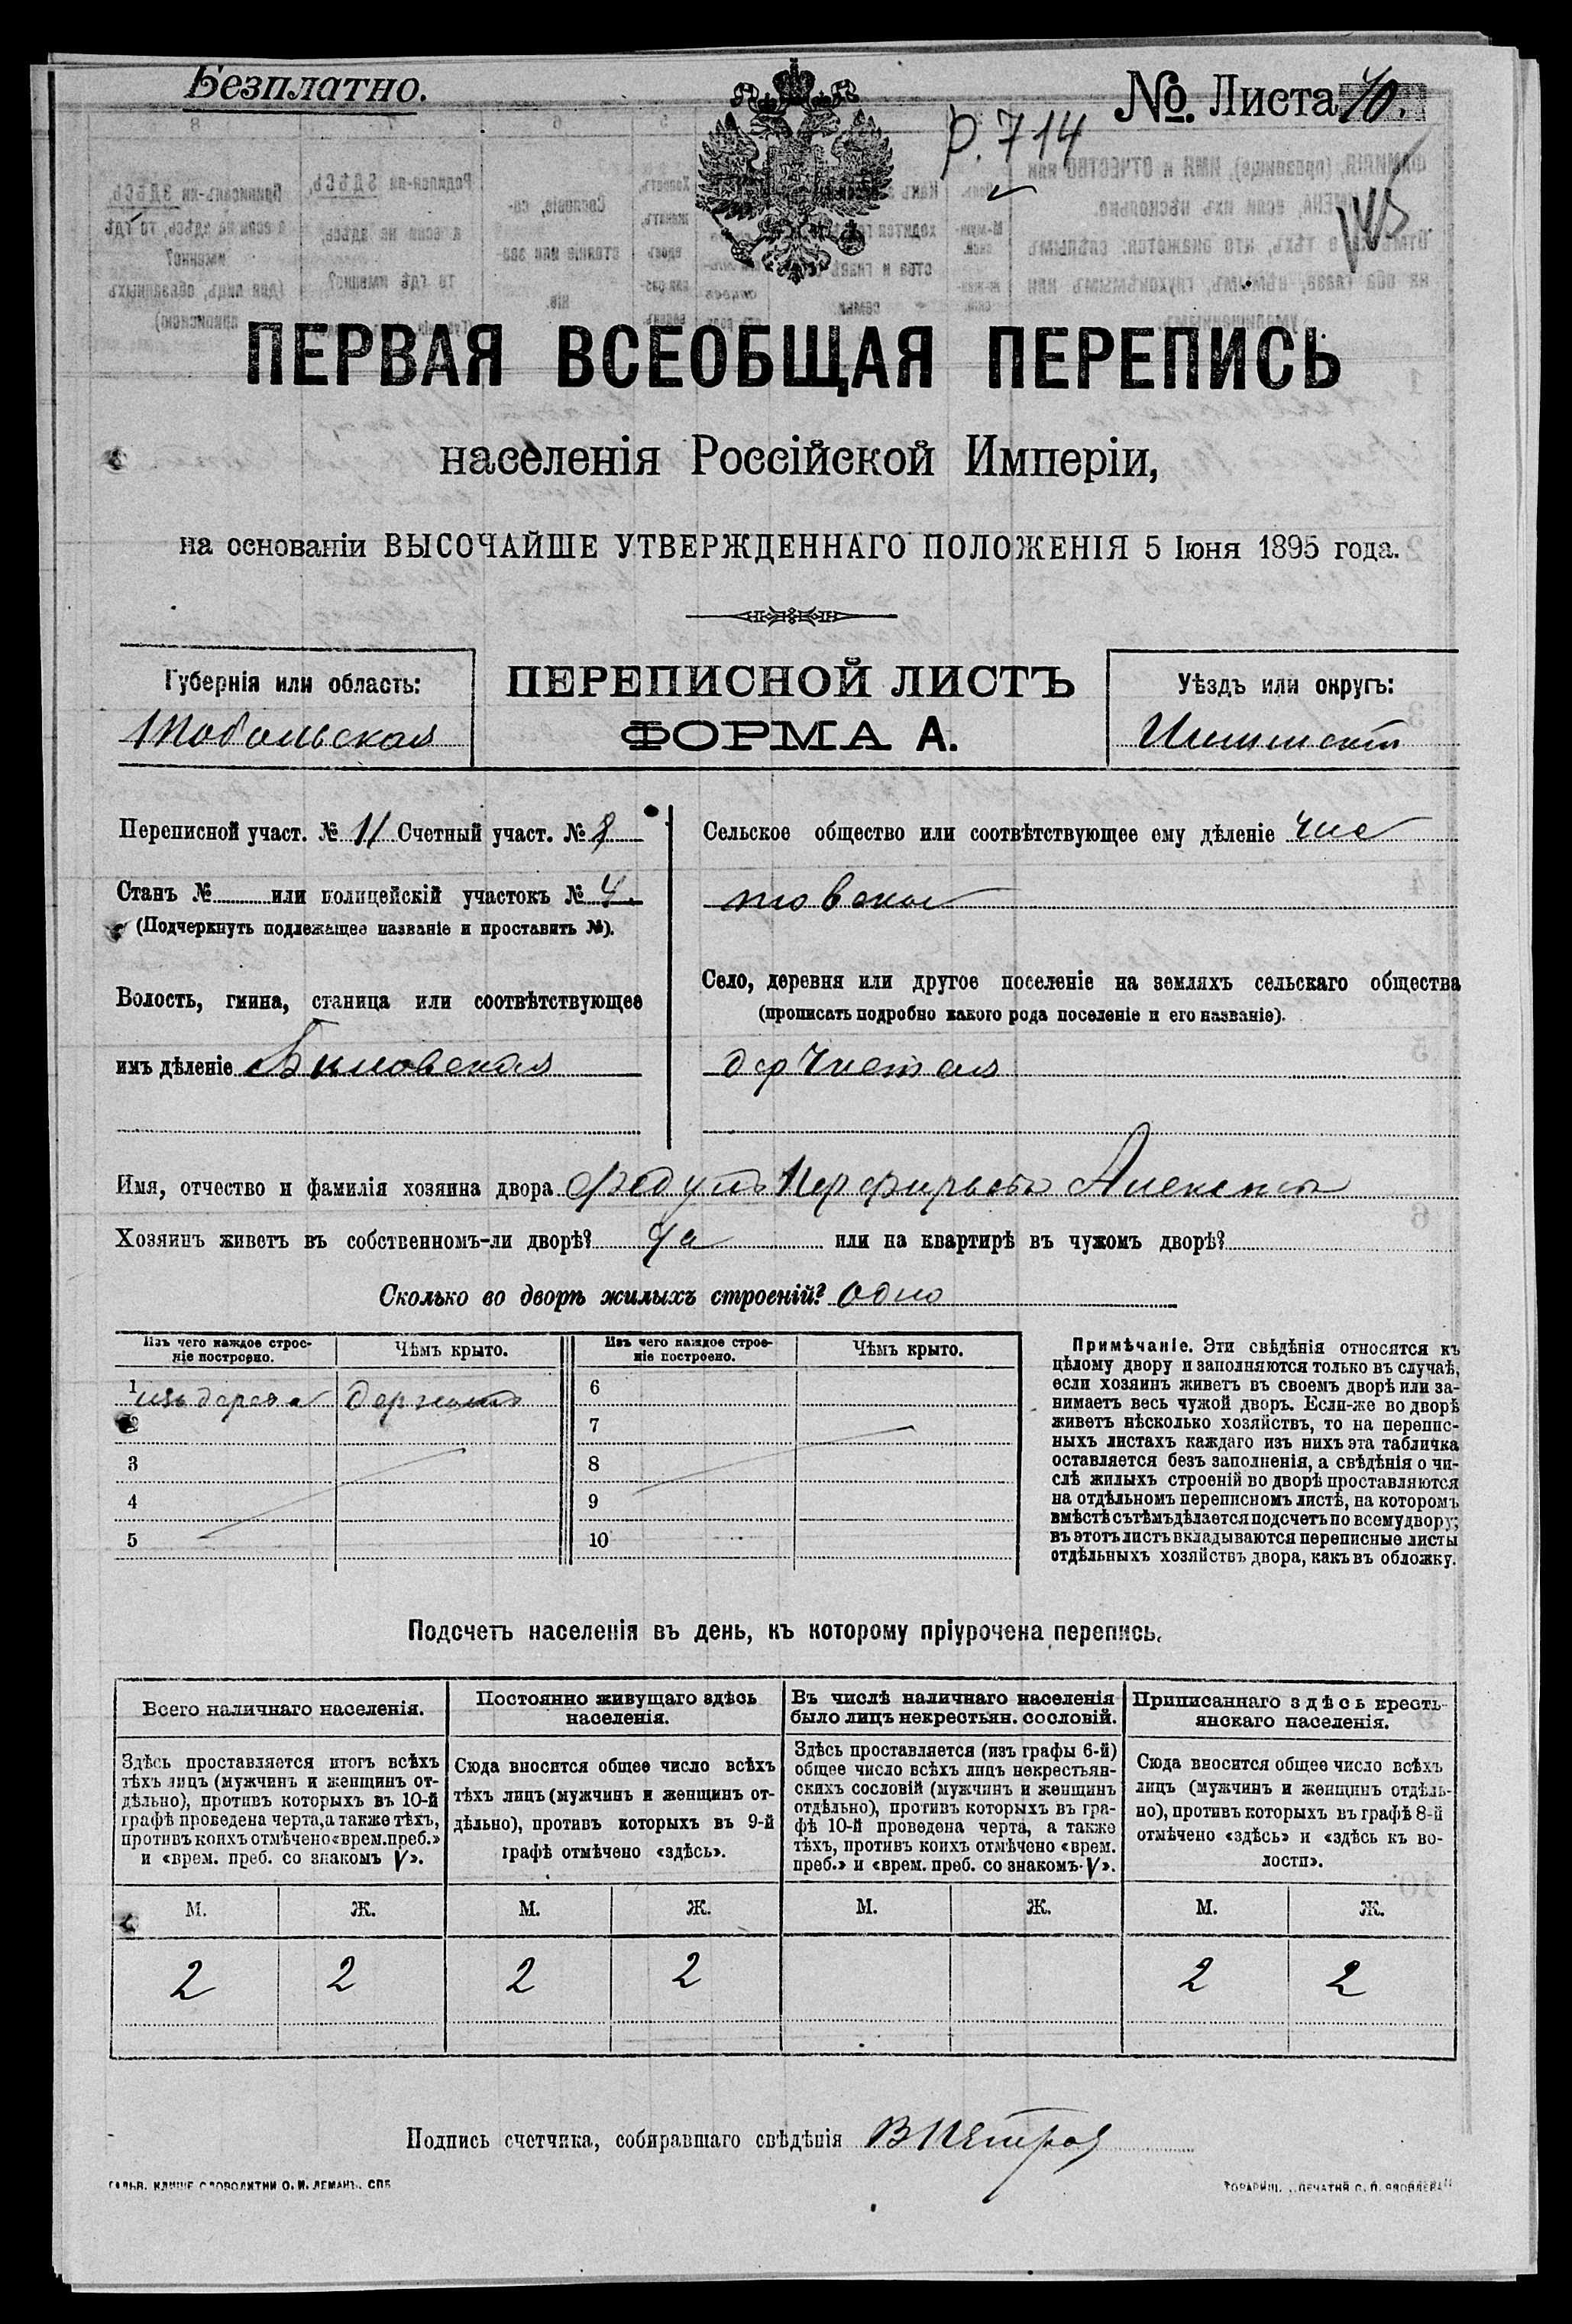 Безплатно.
№. Листа 40.
р. 714
ПЕРВАЯ ВСЕОБЩАЯ ПЕРЕПИСЬ
населенія Россійской Имперіи,
на основаніи ВЫСОЧАЙШЕ УТВЕРЖДЕННАГО ПОЛОЖЕНІЯ 5 Іюня 1895 года.
Губернія или область:
Тобольская
ПЕРЕПИСНОЙ ЛИСТЪ
ФОРМА А.
Уѣздъ или округъ:
Ишимскій
Переписной участ. № 11 Счетный участ. № 8
Станъ № или полицейскій участокъ № 4.
(Подчеркнуть подлежащее названіе и проставить №).
Волость, гмина, станица или соотвѣтствующее
имъ дѣленіе
Сельское общество или соотвѣтствующее ему дѣленіе Чис
товское
Село, деревня или другое поселеніе на земляхъ сельскаго общества
(прописать подробно какого рода поселеніе и его названіе).
дер Чистая
Имя, отчество и фамилія хозяина двора Федулъ Перфирьевъ
Хозяинъ живетъ въ собственномъ-ли дворѣ? да или на квартирѣ въ чужомъ дворѣ?
Сколько во дворѣ жилыхъ строеній? одно
Изъ чего каждое строе-
ніе построено.
Чѣмъ крыто.
Изъ чего каждое строе-
ніе построено.
Чѣмъ крыто.
1 изъ дерева дерномъ
2
3
4
5
6
7
8
9
10
Примѣчаніе. Эти свѣдѣнія относятся къ
цѣлому двору и заполняются только въ случаѣ,
если хозяинъ живетъ въ своемъ дворѣ или за-
нимаетъ весь чужой дворъ. Если-же во дворѣ
живетъ нѣсколько хозяйствъ, то на перепис-
ныхъ листахъ каждаго изъ нихъ эта табличка
оставляется безъ заполненія, а свѣдѣнія о чи-
слѣ жилыхъ строеній во дворѣ проставляются
на отдѣльномъ переписномъ листѣ, на которомъ
вмѣстѣ съ тѣмъ дѣлается подсчетъ по всему двору;
въ этотъ листъ вкладываются переписные листы
отдѣльныхъ хозяйствъ двора, какъ въ обложку.
Подсчетъ населенія въ день, къ которому пріурочена перепись.
Всего наличнаго населенія.
Здѣсь проставляется итогъ всѣхъ
тѣхъ лицъ (мужчинъ и женщинъ от-
дѣльно), противъ которыхъ въ 10-й
графѣ проведена черта, а также тѣхъ,
противъ коихъ отмѣчено «врем. преб.»
и «врем. преб. со знакомъ V».
М. Ж.
2 2
Постоянно живущаго здѣсь
населенія.
Сюда вносится общее число всѣхъ
тѣхъ лицъ (мужчинъ и женщинъ от-
дѣльно), противъ которыхъ въ 9-й
графѣ отмѣчено «здѣсь».
М. Ж.
2 2
Въ числѣ наличнаго населенія
было лицъ некрестьян. сословій.
Здѣсь проставляется (изъ графы 6-й)
общее число всѣхъ лицъ некрестьян-
скихъ сословій (мужчинъ и женщинъ
отдѣльно), противъ которыхъ въ гра-
фѣ 10-й проведена черта, а также
тѣхъ, противъ коихъ отмѣчено «врем.
преб.» и «врем. преб. со знакомъ V».
М. Ж.
Приписаннаго здѣсь кресть-
янскаго населенія.
Сюда вносится общее число всѣхъ
лицъ (мужчинъ и женщинъ отдѣль-
но), противъ которыхъ въ графѣ 8-й
отмѣчено «здѣсь» и «здѣсь къ во-
лости».
М. Ж.
2 2
Подпись счетчика, собиравшаго свѣдѣнія В Петров
ГАЛЬВ. КЛИШЕ СЛОВОЛИТНИ О. И. ЛЕМАНЪ. СПБ
ТОВАРИЩ. „ПЕЧАТНЯ С. П. ЯКОВЛЕВА"